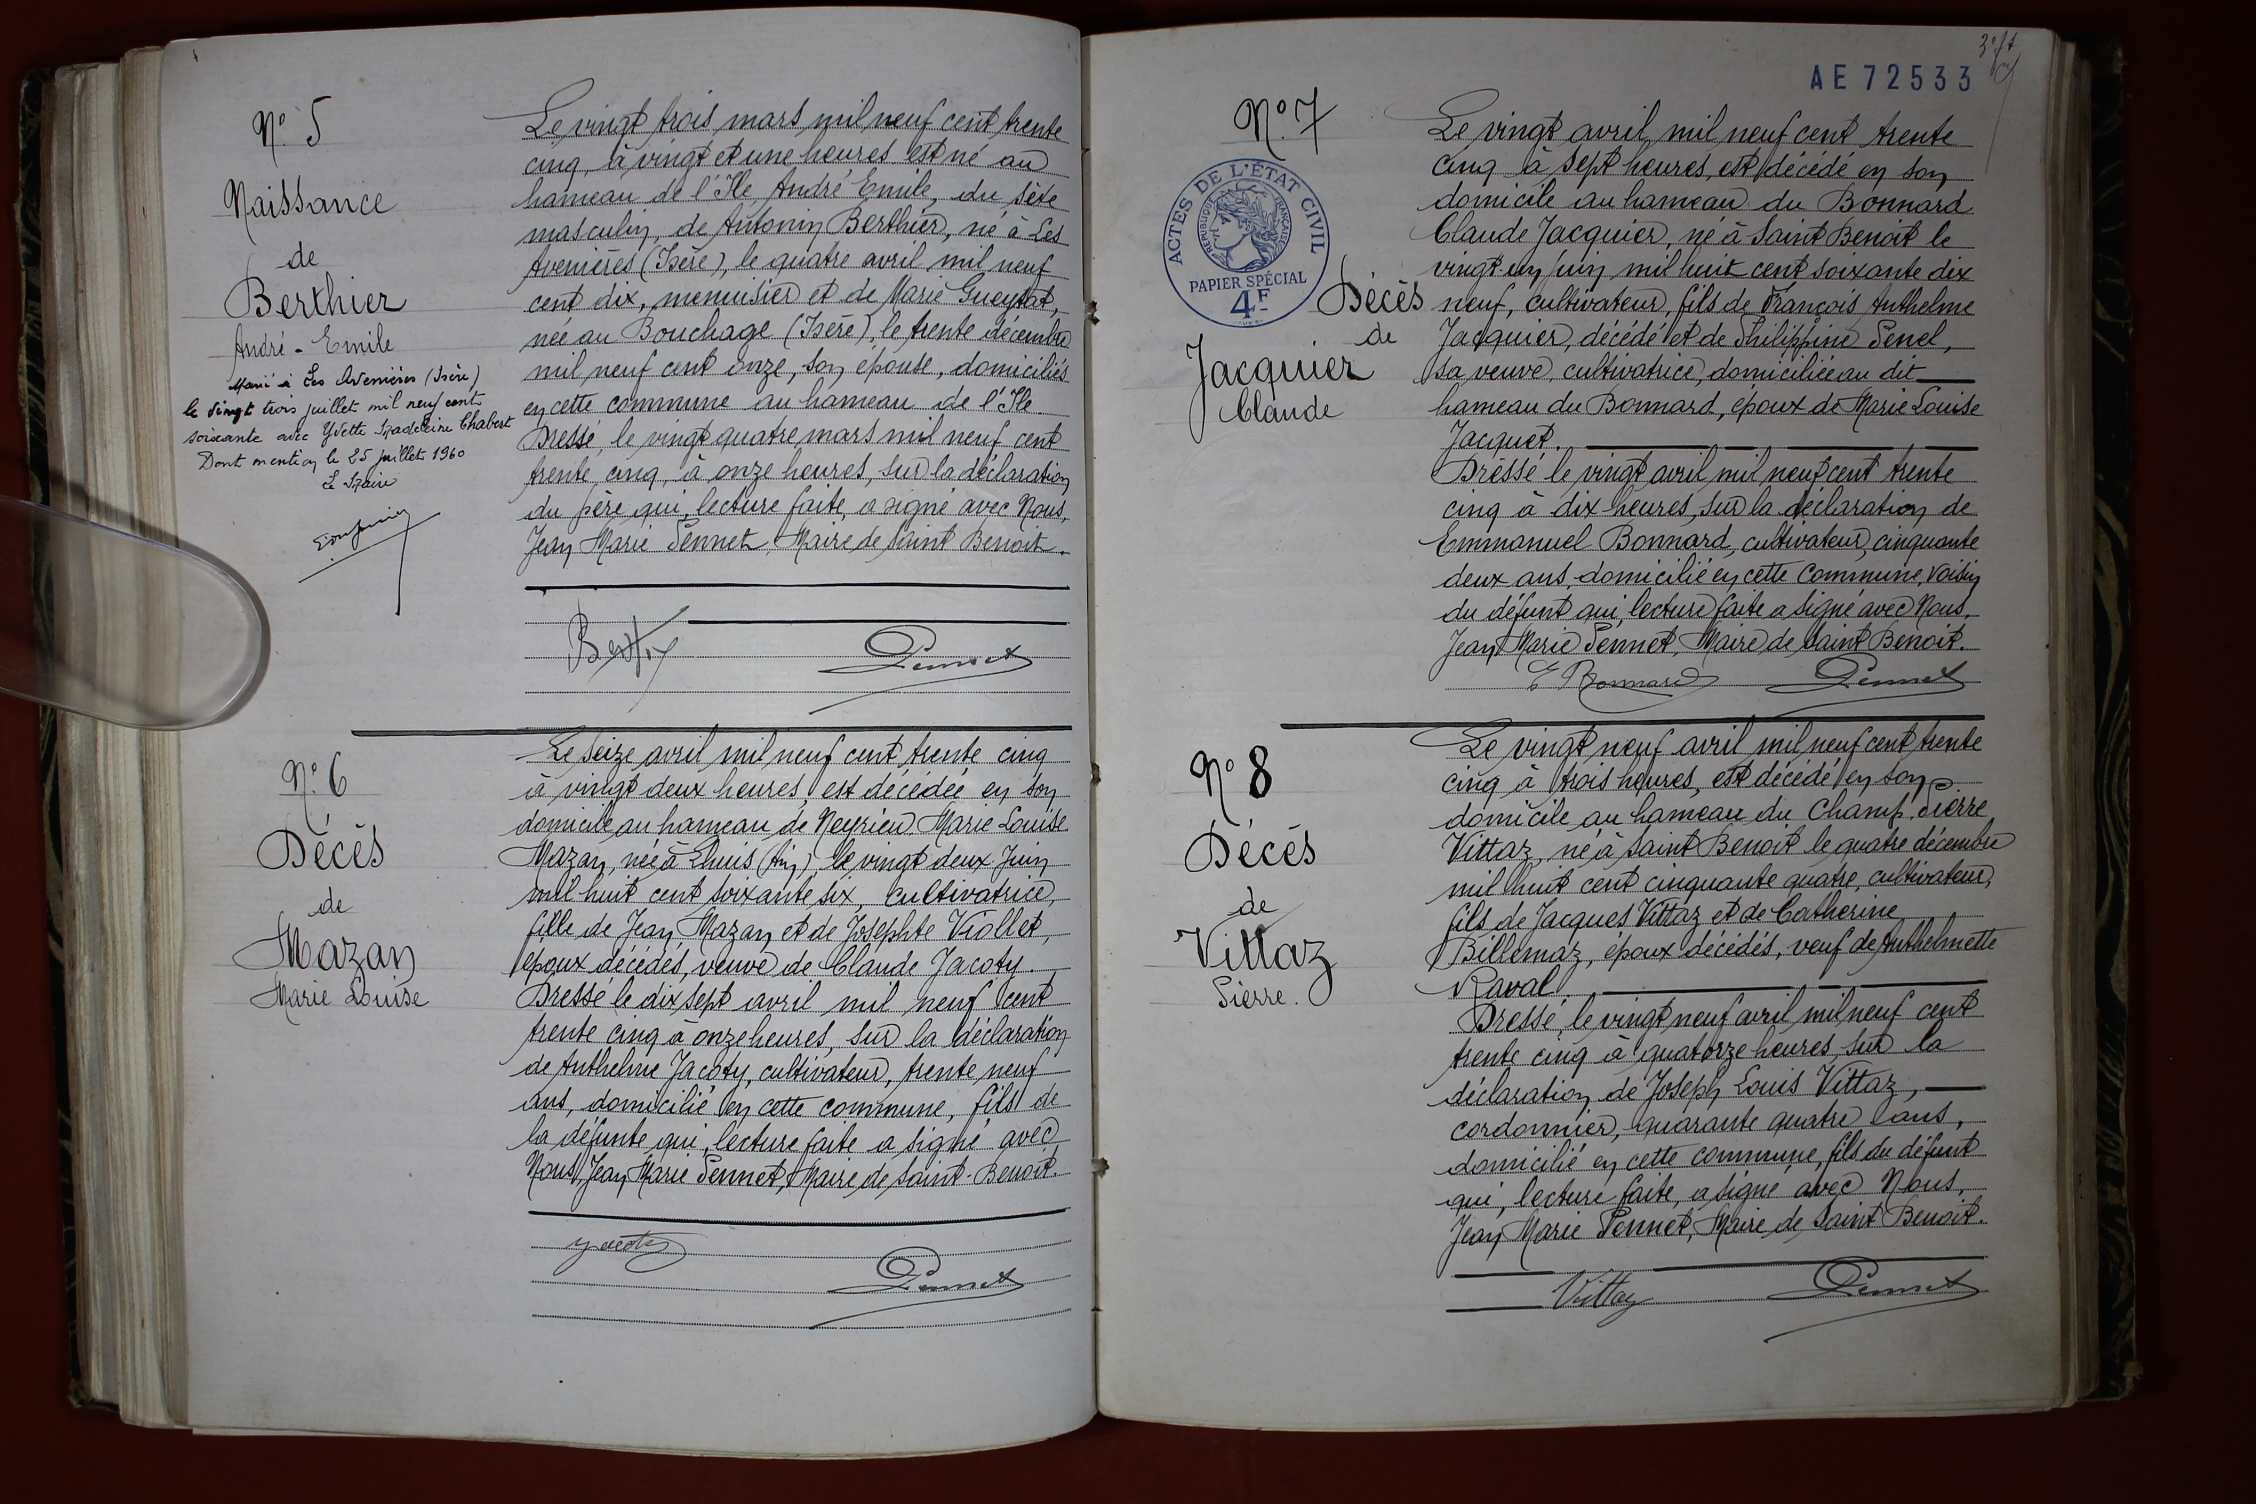 N° 5
Naissance
de
Berthier
André - Emile
Marié à Les Avenières (Isère)
le vingt trois juillet mil neuf cent
soixante avec Yvette Madeleine Chabert
Dont mention le 25 juillet 1960
Le Maire
Le vingt trois mars mil neuf cent trente
cinq, à vingt et une heures est né au
hameau de l'Ile, André Emile, du sexe
masculin, de Antonin Berthier, né à Les
Avenières (Isère), le quatre avril mil neuf
cent dix, menuisier et de Marie Gueytat,
née au Bouchage (Isère), le trente décembre
mil neuf cent onze, son épouse, domiciliés
en cette commune au hameau de l'Ile.
Dressé, le vingt quatre mars mil neuf cent
trente cinq, à onze heures, sur la déclaration
du père qui, lecture faite, a signé avec Nous,
Jean Marie Pennet, Maire de Saint Benoit.
Pennet
N° 6
Décès
de
Mazan
Marie Louise
Le seize avril mil neuf cent trente cinq
à vingt deux heures, est décédée en son
domicile au hameau de Neyrieu, Marie Louise
Mazan, née à Lhuis (Ain), le vingt deux Juin
mil huit cent soixante six, cultivatrice,
fille de Jean Mazan et de Josephte Viollet,
époux décédés, veuve de Claude Jacoty.
Dressé le dix sept avril mil neuf cent
trente cinq à onze heures, sur la déclaration
de Anthelme Jacoty, cultivateur, trente neuf
ans, domicilié en cette commune, fils de
la défunte qui, lecture faite a signé avec
Nous, Jean Marie Pennet, Maire de Saint-Benoit.
Jacoty
Pennet
AE 72533
N° 7
ACTES DE L'ÉTAT CIVIL
RÉPUBLIQUE FRANÇAISE
PAPIER SPÉCIAL
4F
Décès
de
Jacquier
Claude
Le vingt avril mil neuf cent trente
cinq à sept heures, est décédé en son
domicile au hameau du Bonnard
Claude Jacquier, né à Saint Benoit le
vingt-un juin mil huit cent soixante dix
neuf, cultivateur, fils de François Anthelme
Jacquier, décédé et de Philippine Penel,
sa veuve, cultivatrice, domiciliée au dit
hameau du Bonnard, époux de Marie Louise
Jacquet.
Dressé le vingt avril mil neuf cent trente
cinq à dix heures, sur la déclaration de
Emmanuel Bonnard, cultivateur, cinquante
deux ans, domicilié en cette commune, voisin
du défunt qui, lecture faite a signé avec Nous,
Jean Marie Pennet, Maire de Saint Benoit.
E Bonnard Pennet
N° 8
Décès
de
Vittaz
Pierre.
Le vingt neuf avril mil neuf cent trente
cinq à trois heures, est décédé en son
domicile au hameau du Champ, Pierre
Vittaz, né à Saint Benoit le quatre décembre
mil huit cent cinquante quatre, cultivateur,
fils de Jacques Vittaz et de Catherine
Billemaz, époux décédés, veuf de Anthelmette
Raval.
Dressé, le vingt neuf avril mil neuf cent
trente cinq à quatorze heures, sur la
déclaration de Joseph Louis Vittaz,
cordonnier, quarante quatre ans,
domicilié en cette commune, fils du défunt
qui, lecture faite, a signé avec Nous,
Jean Marie Pennet, Maire de Saint Benoit.
Vittaz Pennet